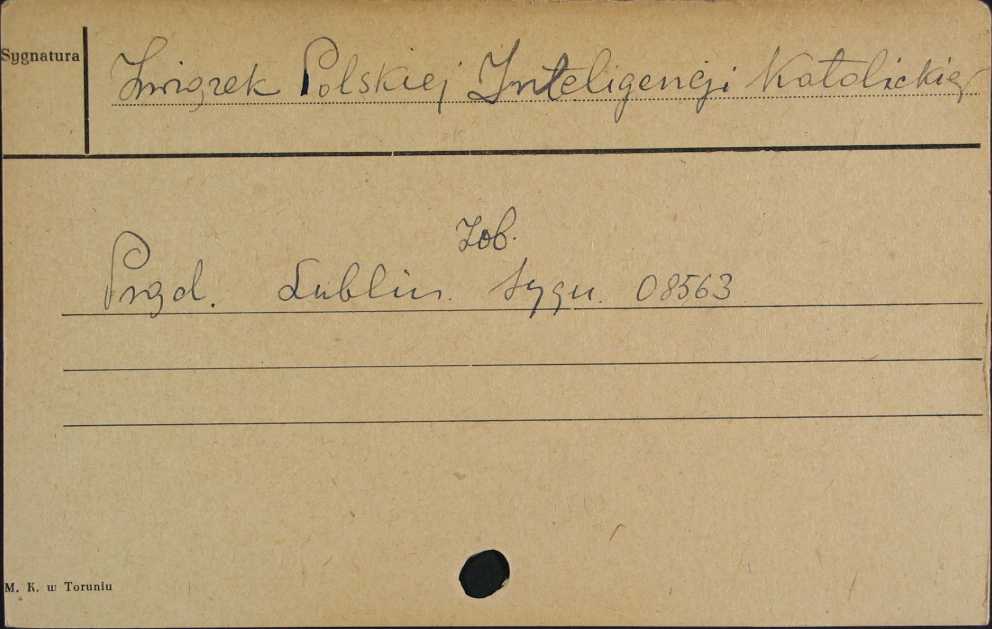 Sygnatura
Związek Polskiej Inteligencji Katolickiej
Zob.
Przd. Lublin. Sygn. 08563
M. K. w Toruniu